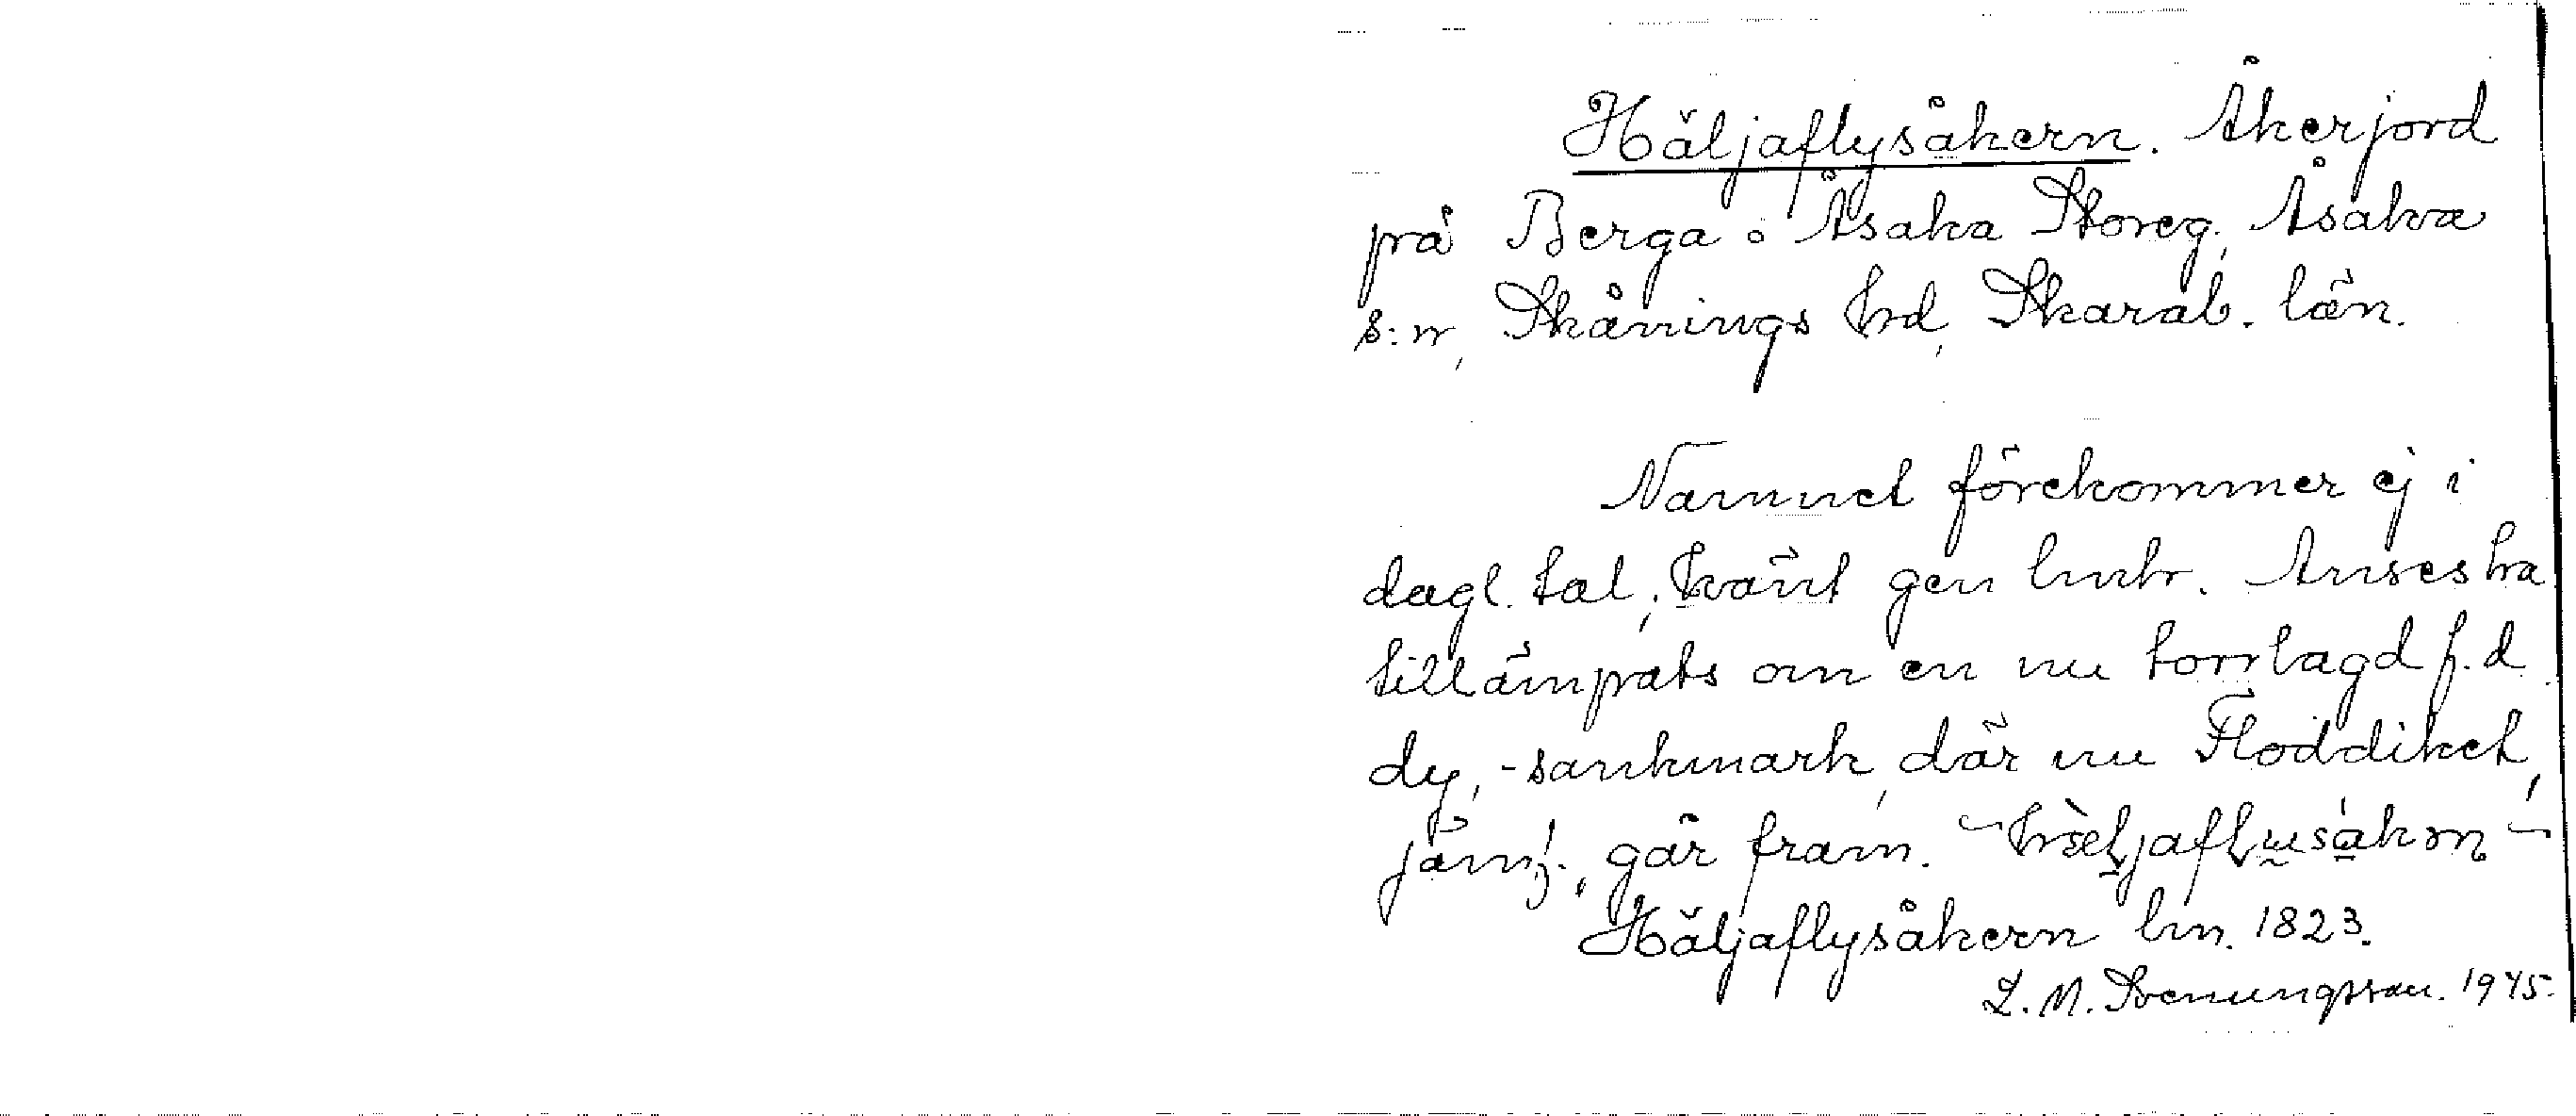 Häljaflysåkern. Åkerjord
på Berga o Åsaka Storeg., Åsaka
s:n, Skånings hd, Skarab. län.
Namnet förekommer ej i
dagl. tal, känt gen lmhr. Anses ha
tillämpats om en nu torrlagd f.d.
dy,-sankmark, där nu Floddiket,
jämf., går fram.
Häljaflysåkern lm. 1823.
L. M. Svenungsson. 1945.